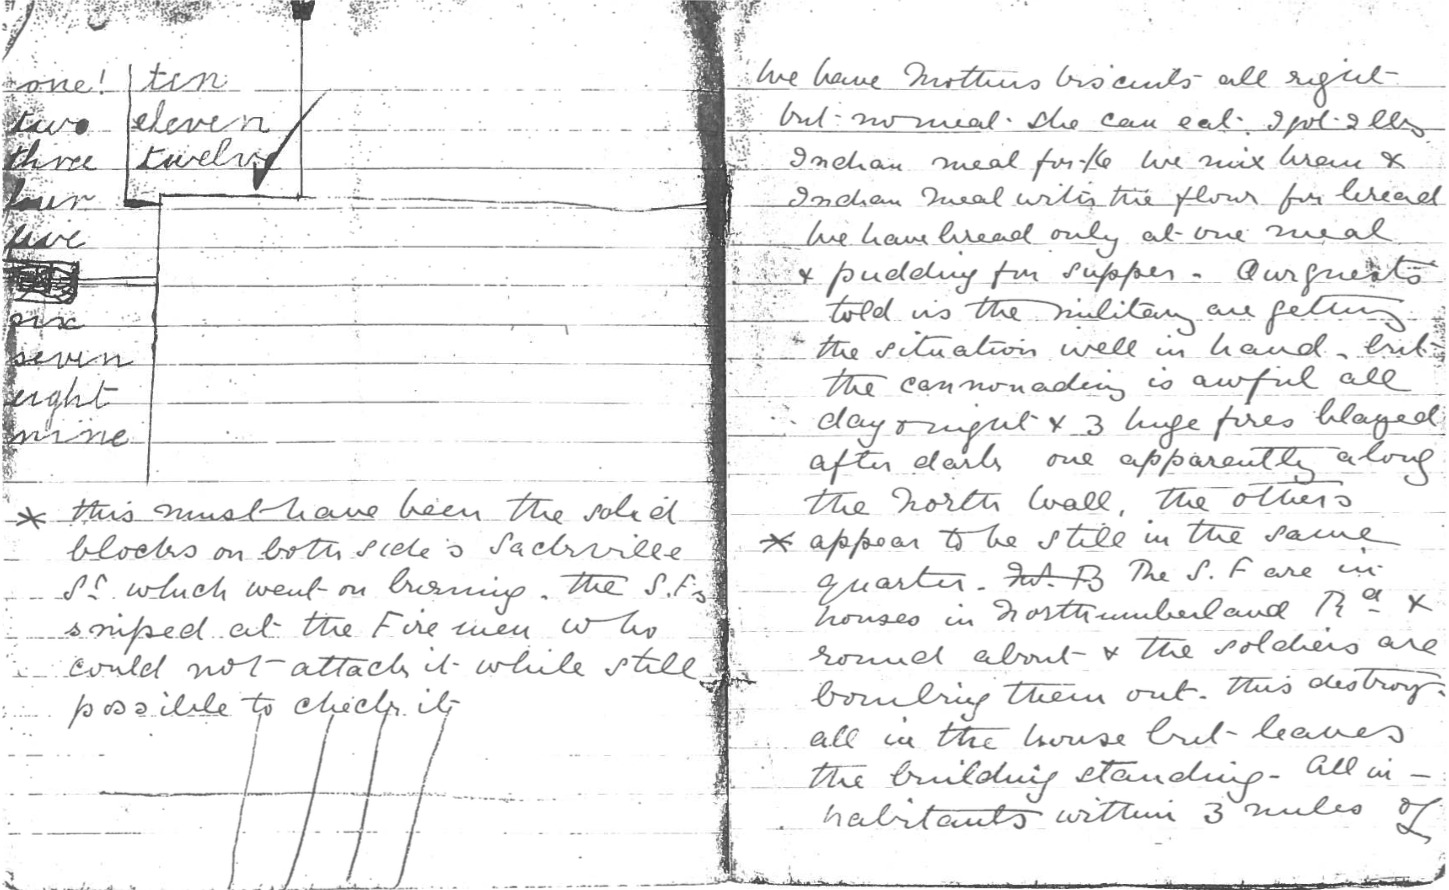 one! ten
two eleven
three twelve
four
five
six
seven
eight
nine
* this must have been the solid
blocks on both side's Sackville
St which went on burning. The S.Fs
sniped at the Firemen who
could not attack it while still
possible to check it
We have Mothers biscuits all right
but no meal she can eat. I got 2 lbs
Indian meal for -/6 We mix bran &
Indian meal with the flour for bread
We have bread only at one meal
& pudding for supper - Our guests
told us the military are getting
the situation well in hand - but
the cannonading is awful all
day & night & 3 huge fires blazed
after dark one apparently along
the North Wall, the others
* appear to be still in the same
quarter. The S. F are in
houses in Northumberland Rd &
round about & the soldiers are
bombing them out. This destroys
all in the house but leaves
the building standing - All in-
habitants within 3 miles of